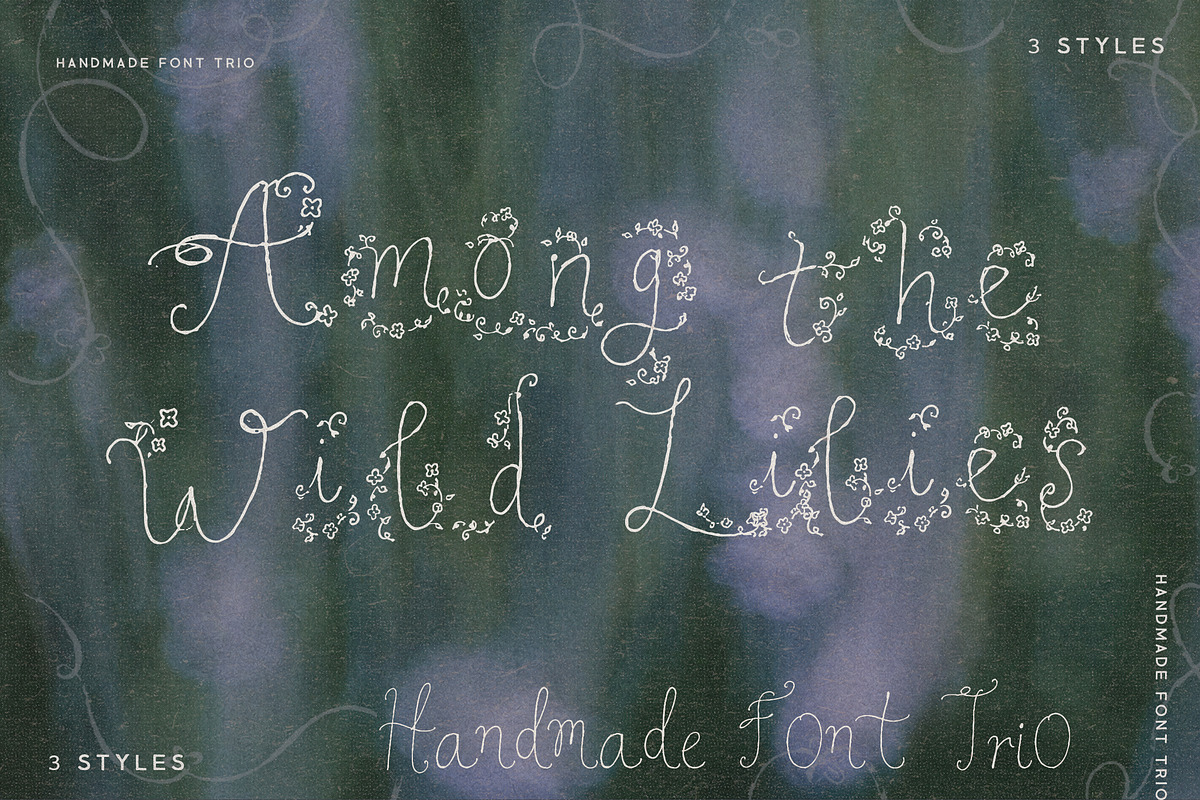 HANDMADE FONT TRIO
3 STYLES
Among the
Wild Lilies
Handmade Font Trio
3 STYLES
HANDMADE FONT TRIO